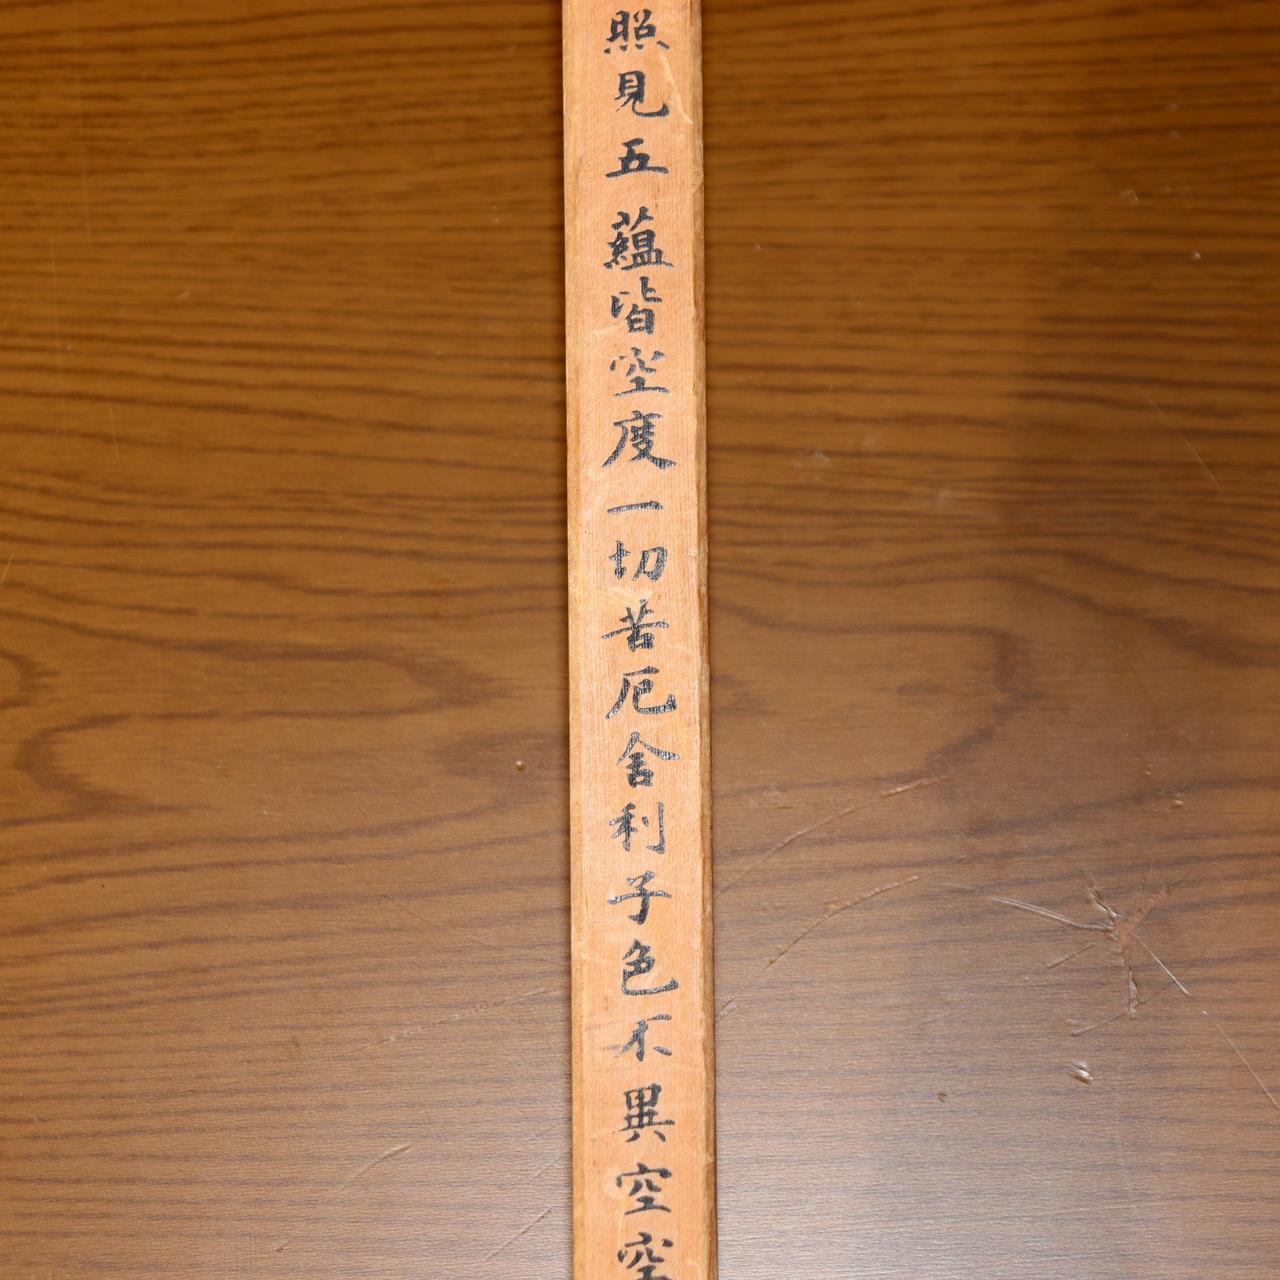 照見五蘊皆空度一切苦厄舍利子色不異空空